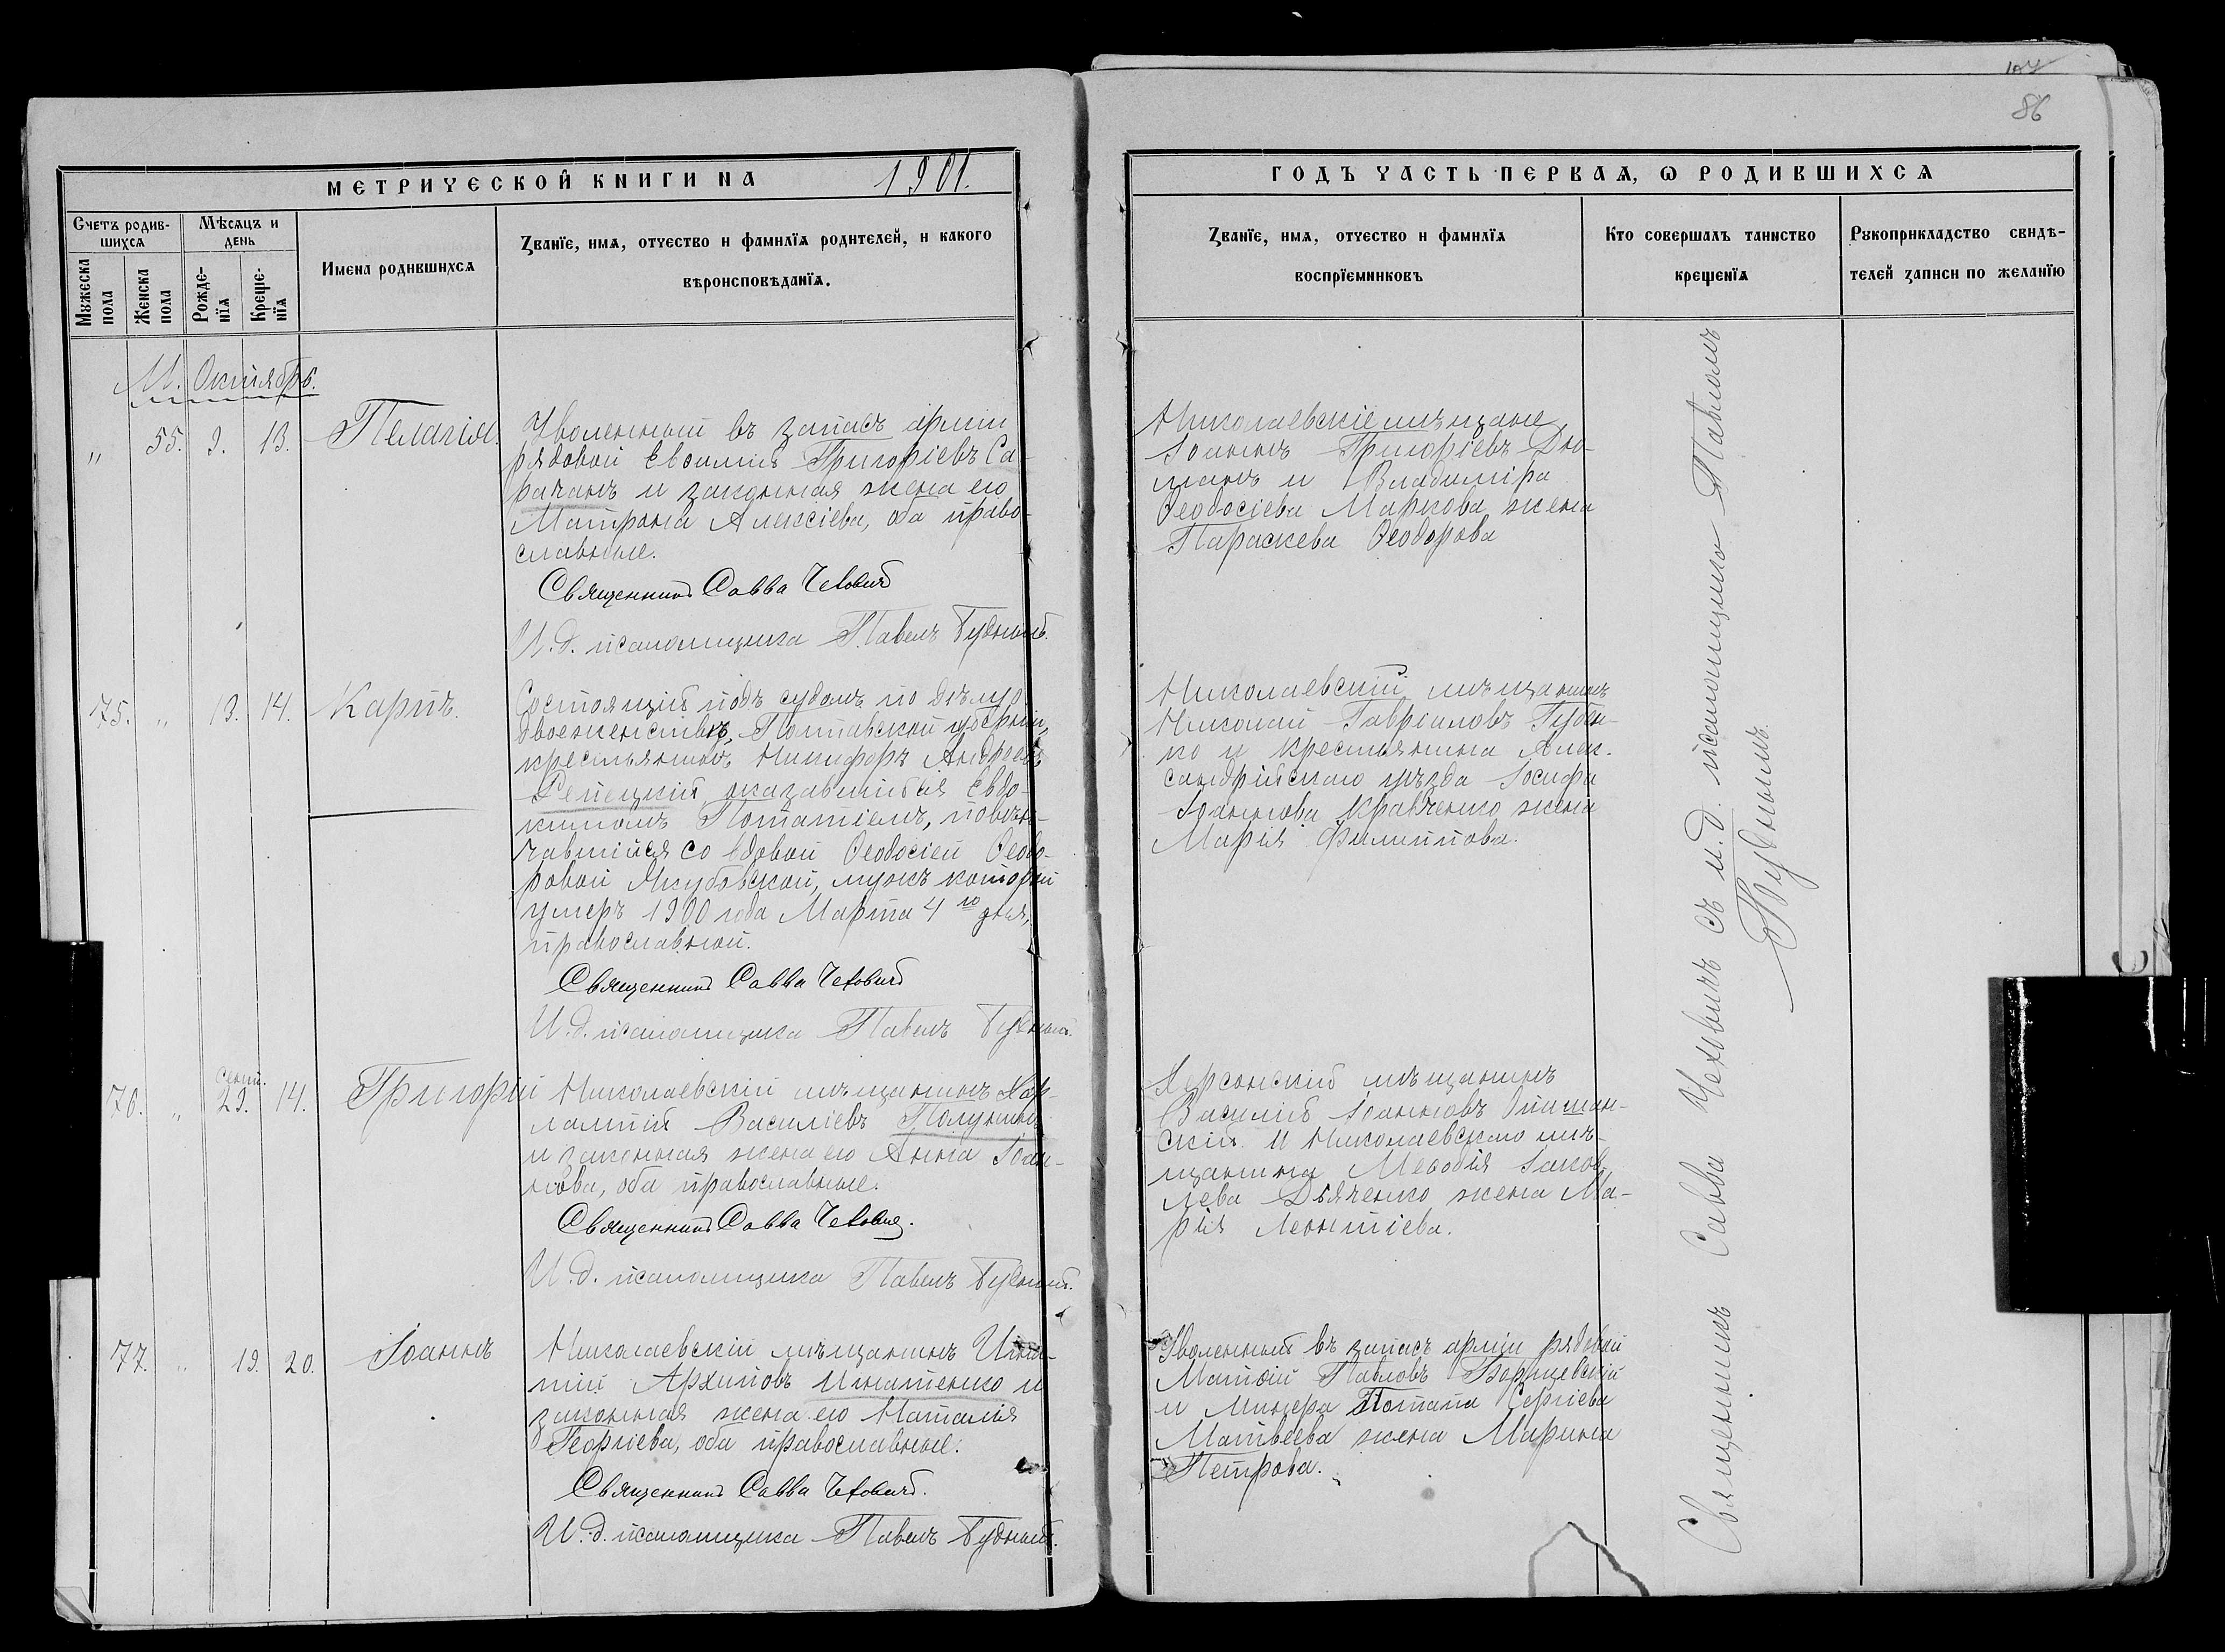 107
86
МЕТРИЧЕСКОЙ КНИГИ НА 1901.
ГОДЪ ЧАСТЬ ПЕРВАЯ, Ѡ РОДИВШИХСЯ
Счетъ родив-
шихся
Мѣсяцъ и
день
Мужеска
пола
Женска
пола
Рожде-
нїя
Креще-
нїя
Имена родившихся
Званїе, имя, отчество и фамилїя родителей, и какого
вѣроисповѣданїя.
Званїе, имя, отчество и фамилїя
воспрїемниковъ
Кто совершалъ таинство
крещенїя
Рукоприкладство свидѣ-
телей записи по желанїю
М. Октябрь.
„ 55. 9. 13. Пелагія.
Уволенный въ запасъ арміи
рядовой Евѳимій Григоріевъ Са-
рачанъ и законная жена его
Матрона Алексіева, оба право-
славные.
Священникъ Савва Чеховичъ
И. д. псаломщика Павелъ Будный.
Николаевскіе мѣщане
Іоаннъ Григоріевъ Дю-
манъ и Владиміра
Ѳеодосіева Маркова жена
Параскева Ѳеодорова
75. „ 13. 14. Карпъ.
Состоящій подъ судомъ по дѣлу о
двоеженствѣ, Полтавской губерніи,
крестьянинъ Никифоръ Андреевъ
Репецкій оказавшійся Евдо-
кимомъ Потапіемъ, повѣн-
чавшійся со вдовой Ѳеодосіей Ѳеодо-
ровой Якубовской, мужъ которой
умеръ 1900 года Марта 4го дня,
православной.
Священникъ Савва Чеховичъ
И. д. псаломщика Павелъ Будный.
Николаевскій мѣщанинъ
Николай Гавріиловъ Губен-
ко и крестьянина Алек-
сандрійскаго уѣзда Іосифа
Іоаннова Кравченко жена
Марія Филиппова.
76. „ Сент. 29. 14. Григорій
Николаевскій мѣщанинъ Хар-
лампій Василіевъ Полунинъ
и законная жена его Анна Іоан-
нова, оба православные.
Священникъ Савва Чеховичъ.
И. д. псаломщика Павелъ Будный.
Херсонскій мѣщанинъ
Василій Іоанновъ Опишан-
скій и Николаевскаго мѣ-
щанина Меѳодія Іаков-
лева Дьяченко жена Ма-
рія Леонтіева.
77. „ 19. 20. Іоаннъ
Николаевскій мѣщанинъ Игна-
тій Архиповъ Игнатенко и
законная жена его Наталія
Георгіева, оба православные.
Священникъ Савва Чеховичъ.
И. д. псаломщика Павелъ Будный.
Уволенный въ запасъ арміи рядовой
Матѳій Павловъ Борщевскій
и Минера Потапа Сергіева
Матвѣева жена Марина
Петрова.
Священникъ Савва Чеховичъ съ и. д. псаломщика Павломъ
Буднымъ.